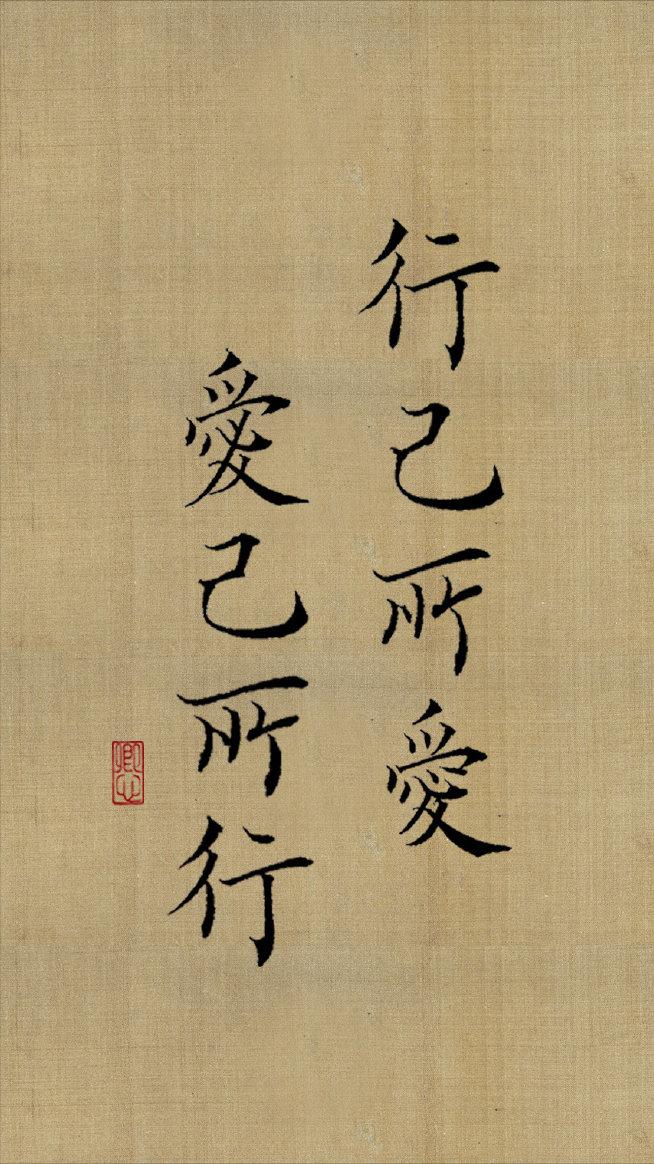 行己所愛
愛己所行